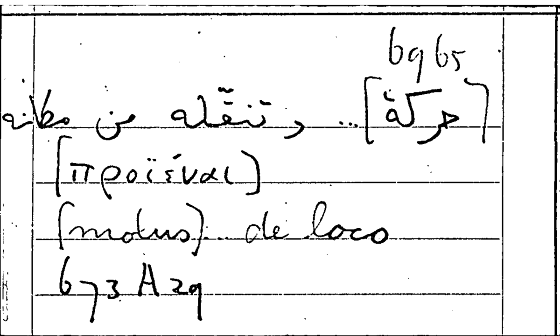 6965
[حركة] ... وتنقّله من مكانه
[προϊέναι]
[motus]... de loco
673 A 29